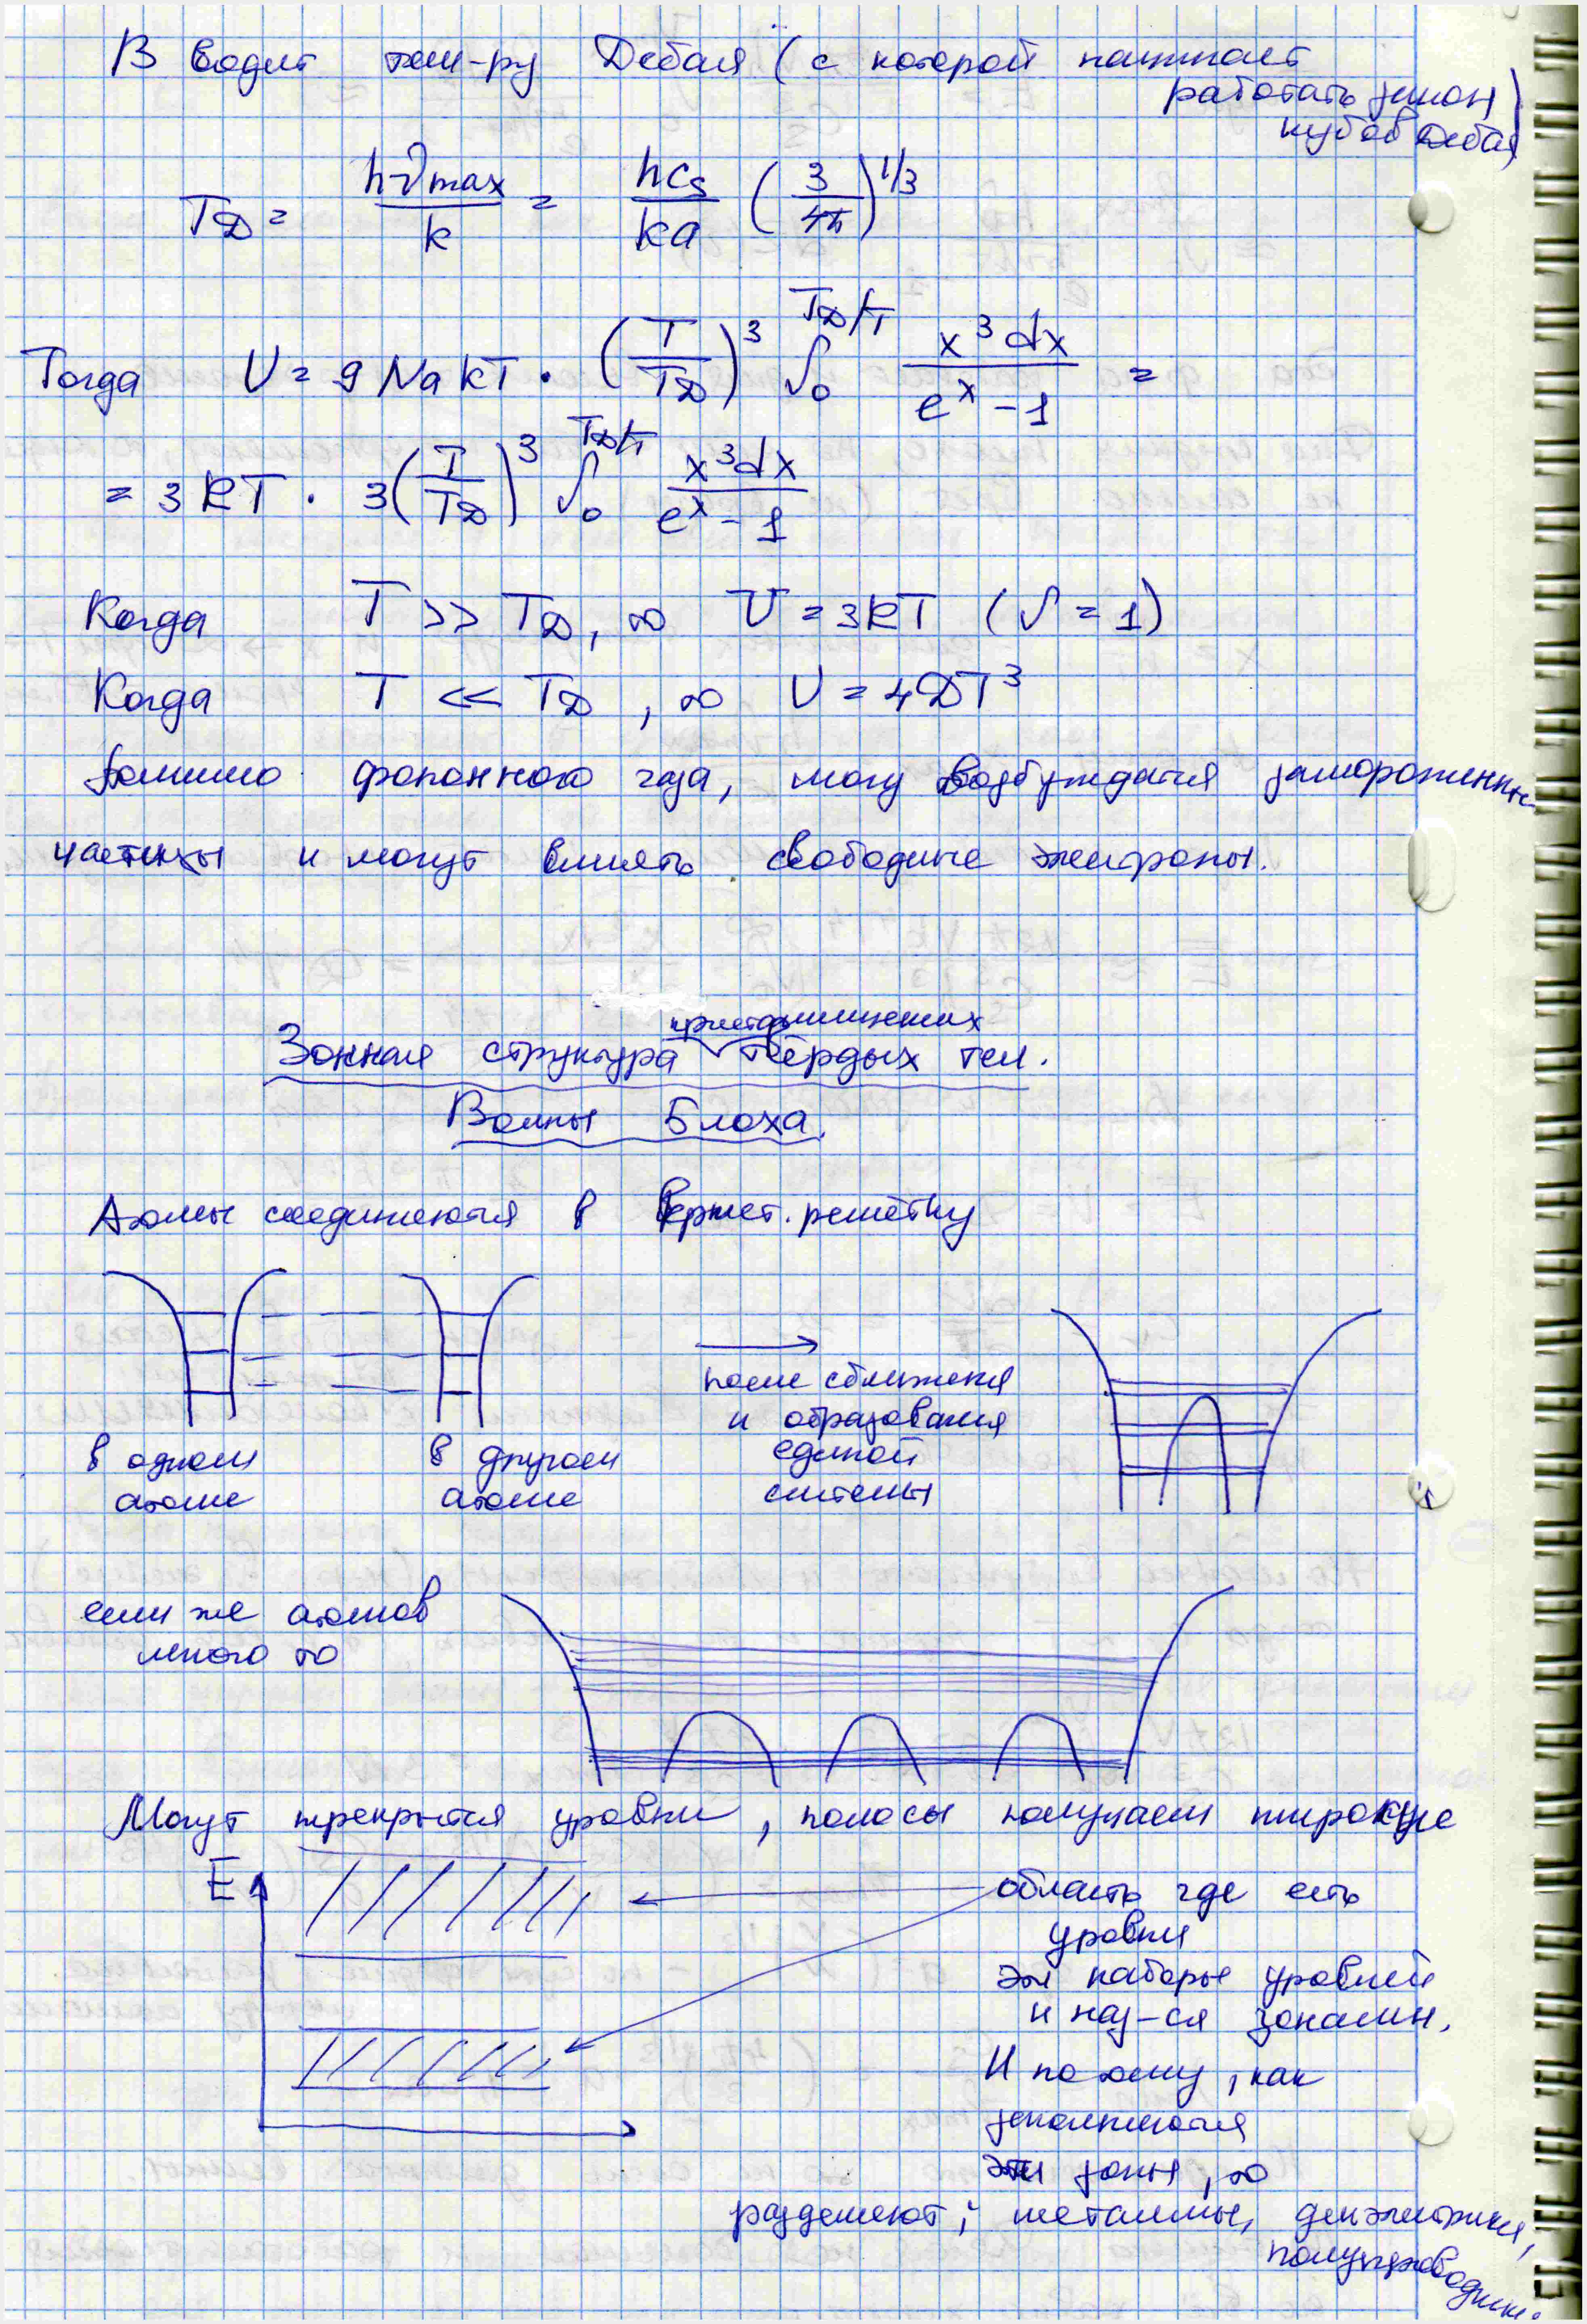 Вводит тем-ру Дебая (с которой начинает
работать закон
кубов Дебая)
T_D = hν_max / k = hc_s / ka (3/4π)^1/3
Тогда U = 9 N_a kT · (T/T_D)^3 ∫_0^{T_D/T} x^3 dx / (e^x - 1) =
= 3RT · 3(T/T_D)^3 ∫_0^{T_D/T} x^3 dx / (e^x - 1)
Когда T >> T_D, то U = 3RT (∫ = 1)
Когда T << T_D, то U = 4DT^3
Помимо фононного газа, могу возбуждатся замороженные
частицы и могут влиять свободные электроны.
кристаллических
Зонная структура твёрдых тел.
Волны Блоха.
Атомы соединяются в крист. решётку
в одном
атоме
в другом
атоме
после сближения
и образования
единой
системы
если же атомов
много то
Могут перекрытся уровни, полосы получаем широкие
E
область где есть
уровни
эти наборы уровней
и наз-ся зонами.
И по тому, как
заполняются
эти зоны, то
разделяют: металлы, диэлектрики,
полупроводники.